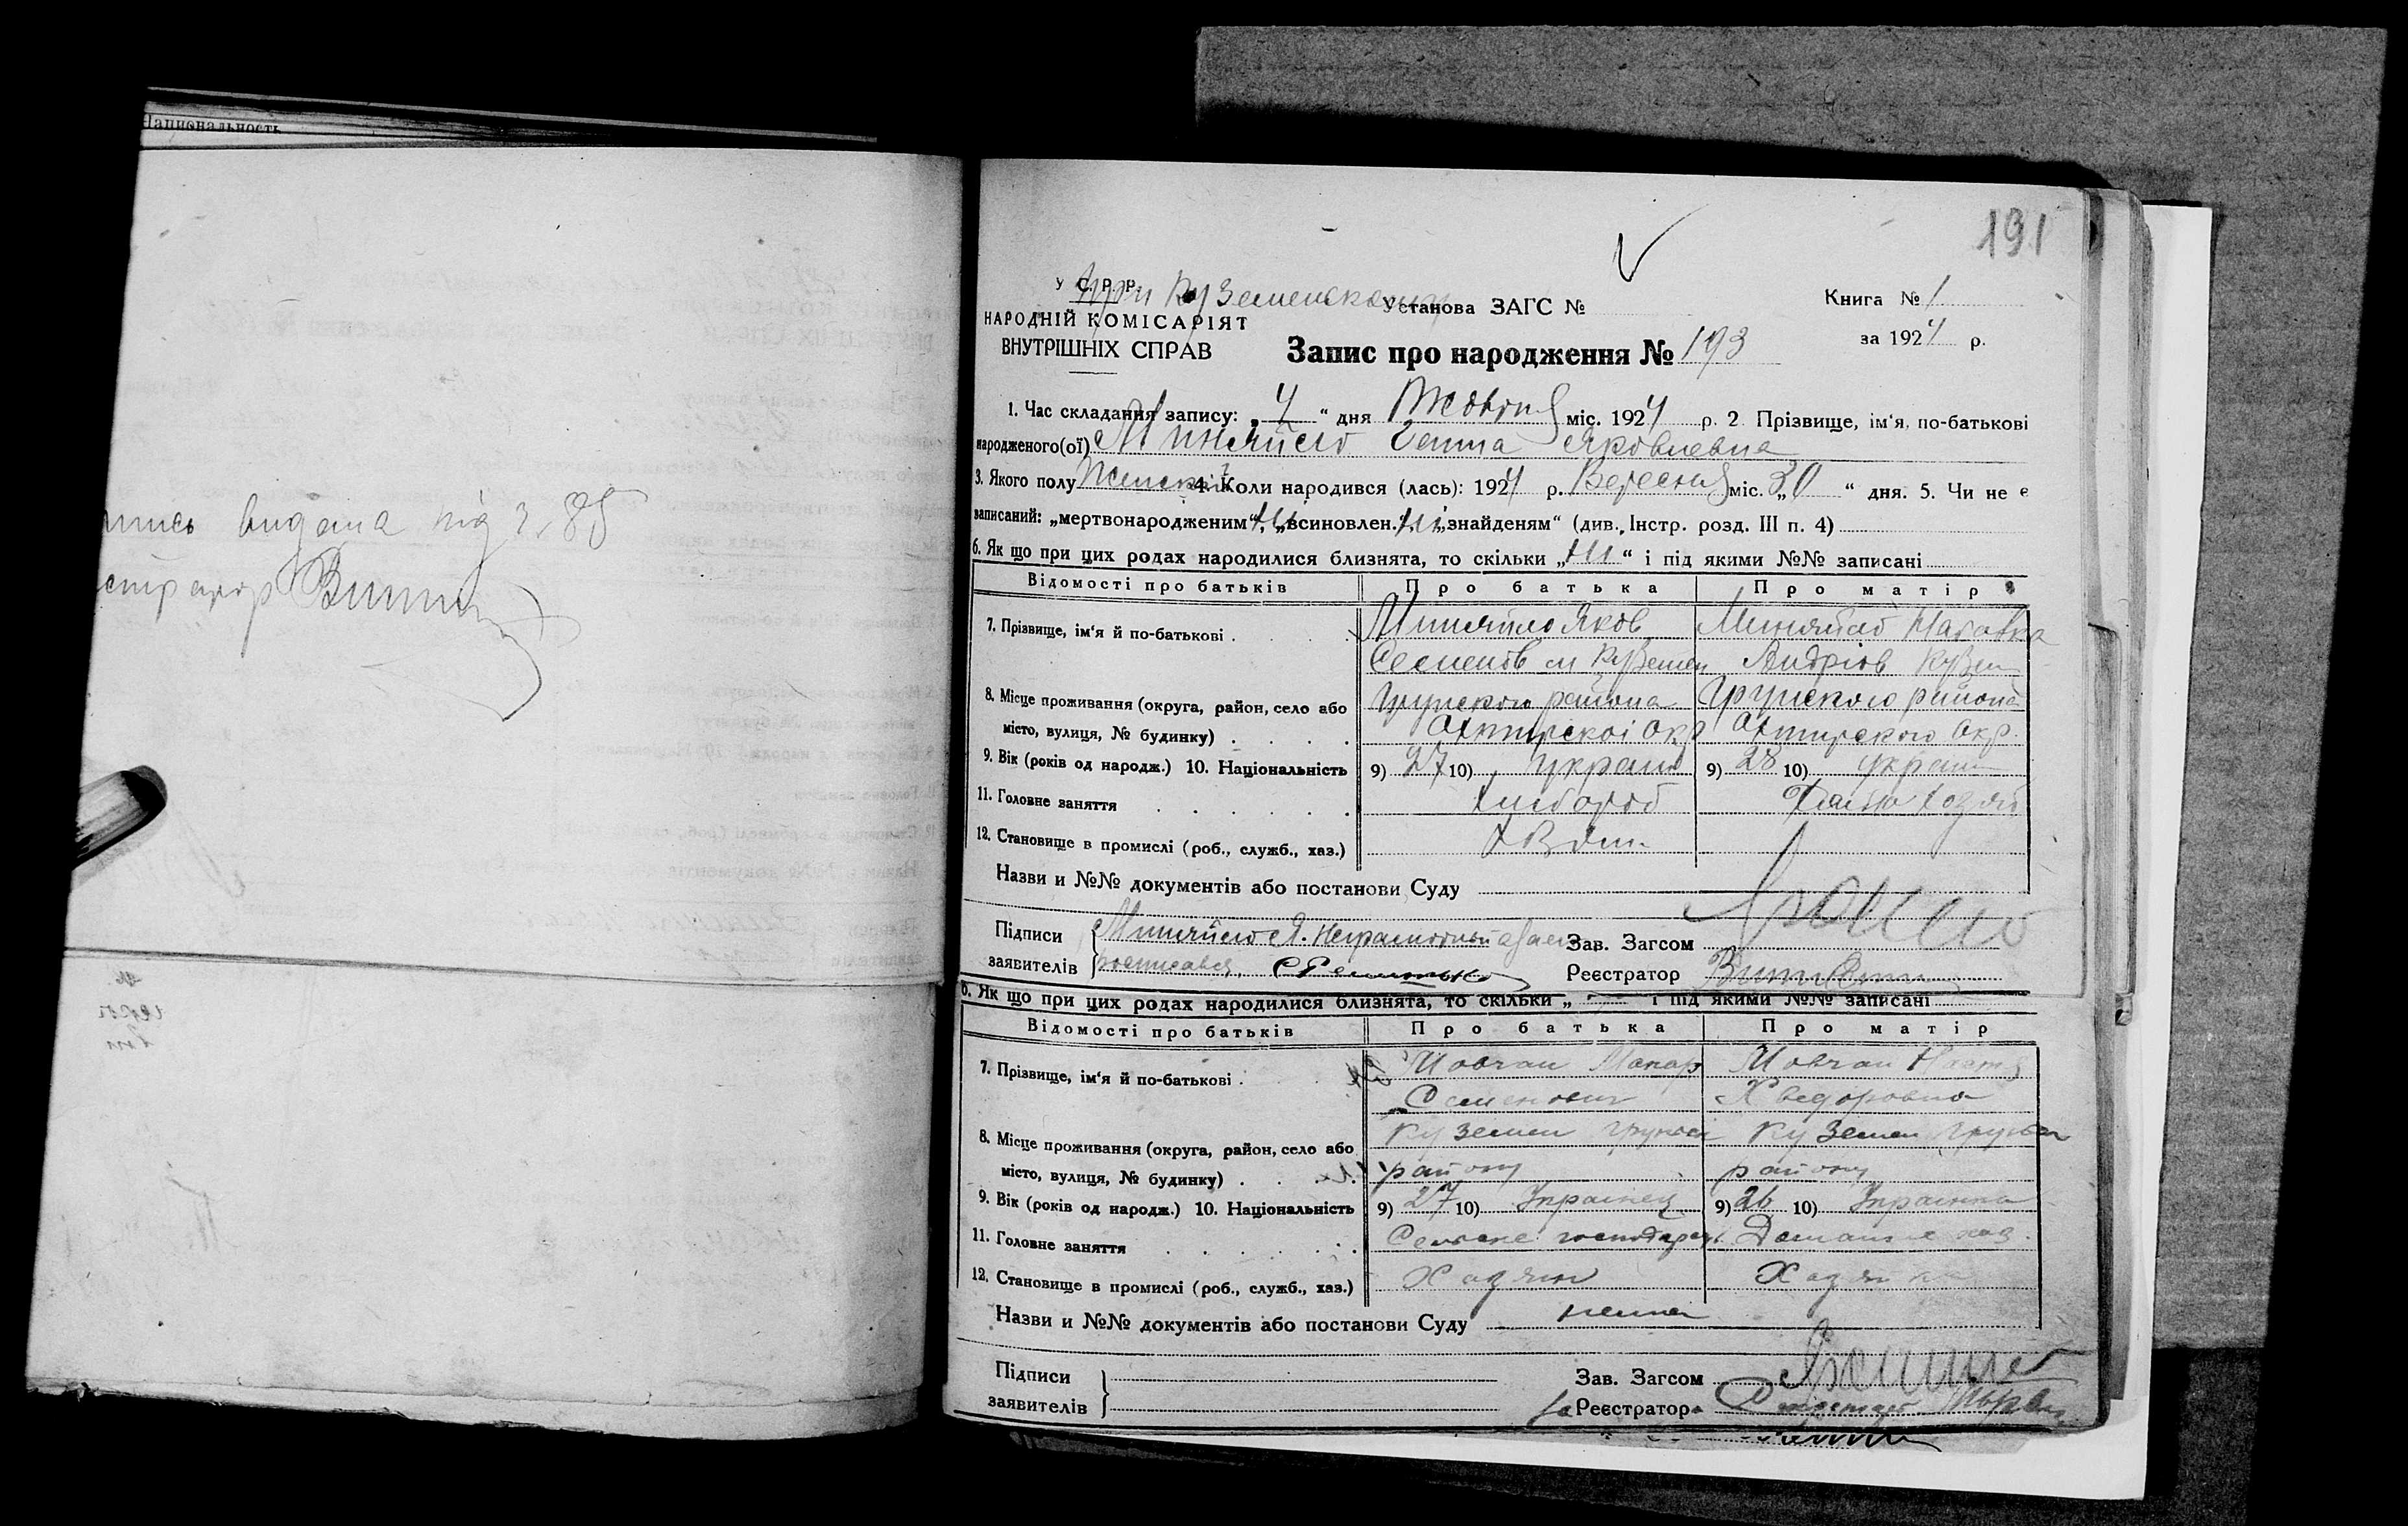 Национальность
видана під №85
191
У С. Р. Р.
при Куземенському
Установа ЗАГС №
Книга № 1
НАРОДНІЙ КОМІСАРІЯТ
ВНУТРІШНІХ СПРАВ
за 1924 р.
Запис про народження № 193
1. Час складання запису: „4“ дня Жовтня міс. 1924 р. 2 Прізвище, ім'я, по-батькові
народженого(ої) Миняйло Ганна Яковлевна
3. Якого полу Женск. 4. Коли народився (лась): 1924 р. Вересня міс. „30“ дня. 5. Чи не є
записаний: „мертвонародженим“, ні „всиновлен.“, ні „знайденям“ (див. Інстр. розд. III п. 4)
6. Як що при цих родах народилися близнята, то скільки „ні“ і під якими №№ записані
Відомості про батьків Про батька Про матір
7. Прізвище, ім'я й по-батькові Миняйло Яков Миняйло
Семенов м Куземен Андріов Кузем
8. Місце проживання (округа, район, село або Грунского района Грунского района
місто, вулиця, № будинку) Охтирскоі Окр Охтирского Окр.
9. Вік (років од народж.) 10. Національність 9) 27 10) украин 9) 28 10) украин
11. Головне заняття Хлибороб
12. Становище в промислі (роб., служб., хаз.)
Назви и №№ документів або постанови Суду
Підписи Миняйло Я. Неграмотный а за его Зав. Загсом
заявителів росписався. Реєстратор
6. Як що при цих родах народилися близнята, то скільки „ і під якими №№ записані
Відомості про батьків Про батька Про матір
7. Прізвище, ім'я й по-батькові Мовчан Макар Мовчан Настя
Семенович Хведоровна
8. Місце проживання (округа, район, село або Куземен Грунськ Куземен Грунськ
місто, вулиця, № будинку) району району
9. Вік (років од народж.) 10. Національність 9) 27 10) Украінец 9) 26 10) Украінка
11. Головне заняття Сельске господарст. Домашнє хаз.
12. Становище в промислі (роб., служб., хаз.) Хазяин Хазяйка
Назви и №№ документів або постанови Суду нема
Підписи Зав. Загсом
заявителів За Реєстратора